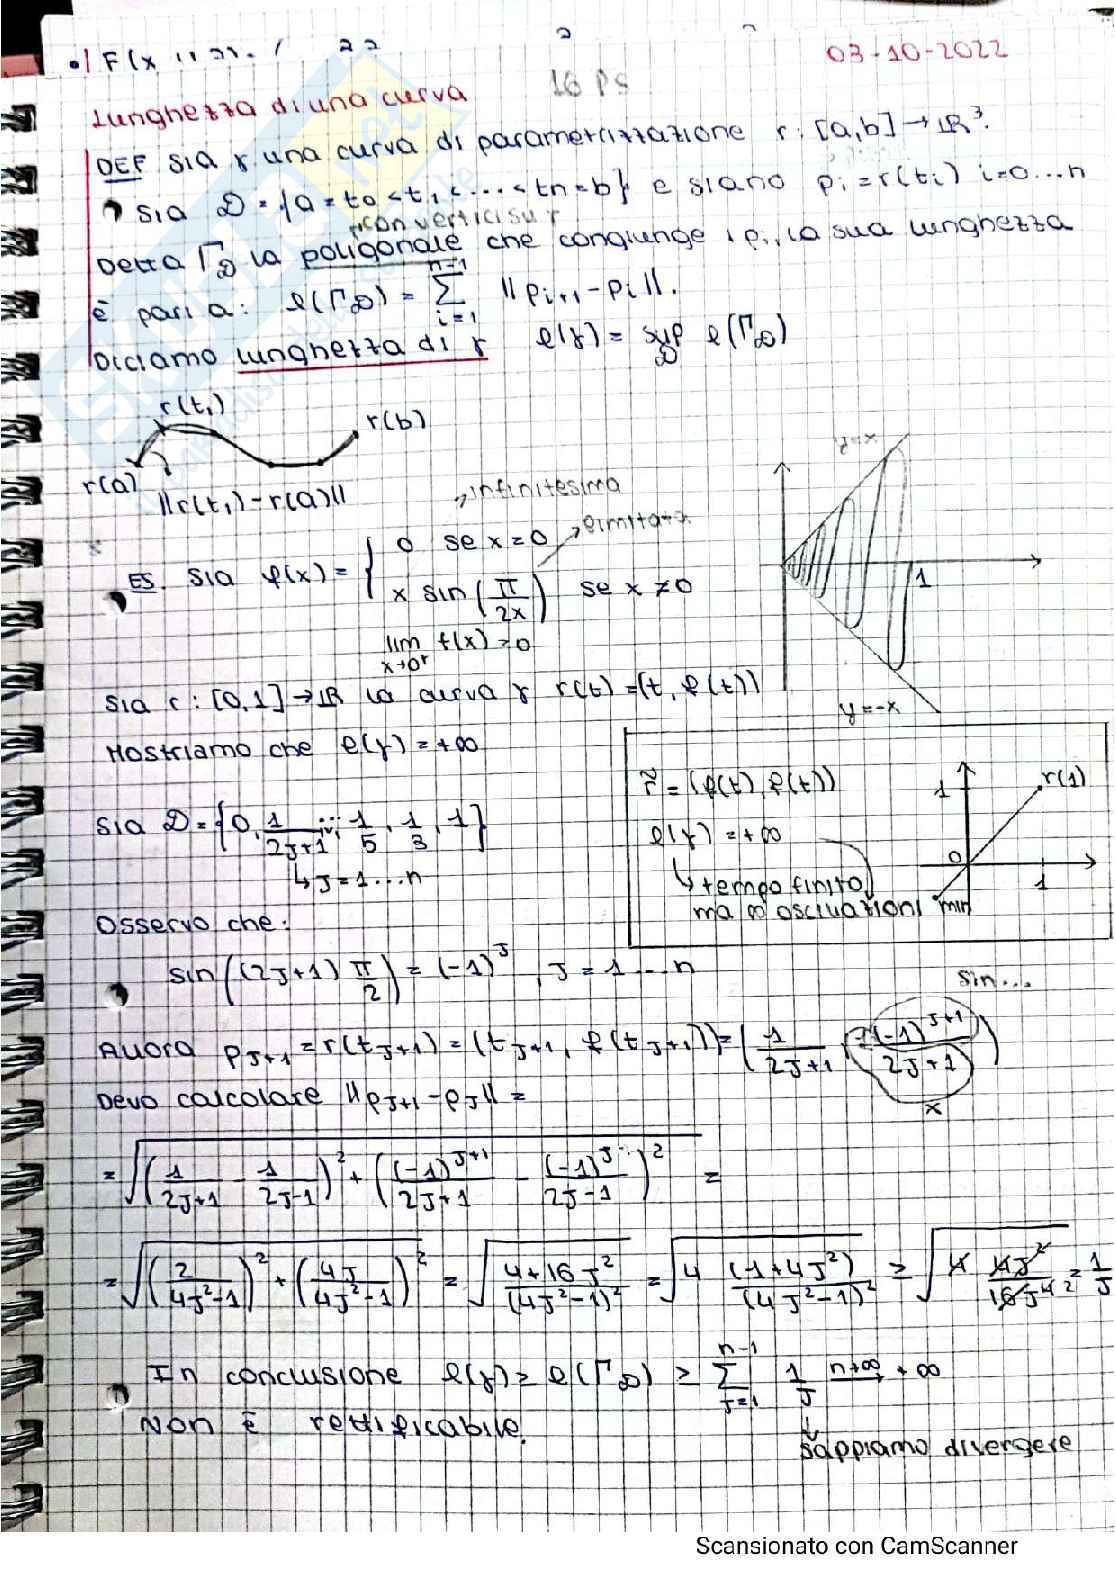 03-10-2022
16 PS
Lunghezza di una curva
DEF sia γ una curva di parametrizzazione r: [a,b] → ℝ³.
sia D = {a = t₀ < t₁ < ... < tn = b} e siano pi = r(ti) i=0...n
con vertici su r
Detta Γ_D la poligonale che congiunge i pi, la sua lunghezza
è pari a: ℓ(Γ_D) = Σ_{i=1}^{n-1} ||p_{i+1} - p_i||.
Diciamo lunghezza di γ ℓ(γ) = sup_D ℓ(Γ_D)
r(t₁)
r(b)
r(a)
||r(t₁) - r(a)||
infinitesima
limitata
ES. Sia f(x) = { 0 se x = 0
x sin(π/2x) se x ≠ 0
lim_{x→0⁺} f(x) = 0
y=x
1
y=-x
Sia r: [0,1] → ℝ la curva γ r(t) = (t, f(t))
Mostriamo che ℓ(γ) = +∞
r̃ = (f(t), f(t))
ℓ(γ) = +∞
↳ tempo finito
ma ∞ oscillazioni
1
r(1)
0
1
min
Sia D = {0, 1/(2J+1), ..., 1/5, 1/3, 1}
↳ J = 1...n
Osservo che:
sin((2J+1) π/2) = (-1)^J, J = 1...n
sin...
Allora p_{J+1} = r(t_{J+1}) = (t_{J+1}, f(t_{J+1})) = (1/(2J+1), (-1)^{J+1}/(2J+1))
x
Devo calcolare ||p_{J+1} - p_J|| =
= √((1/(2J+1) - 1/(2J-1))² + ((-1)^{J+1}/(2J+1) - (-1)^J/(2J-1))²) =
= √((2/(4J²-1))² + (4J/(4J²-1))²) = √((4+16J²)/(4J²-1)²) = √(4 (1+4J²)/(4J²-1)²) ≥ √(4 4J²/16J⁴) = 1/J
In conclusione ℓ(γ) ≥ ℓ(Γ_D) ≥ Σ_{J=1}^{n-1} 1/J n→∞ → +∞
Non è rettificabile.
sappiamo divergere
Scansionato con CamScanner